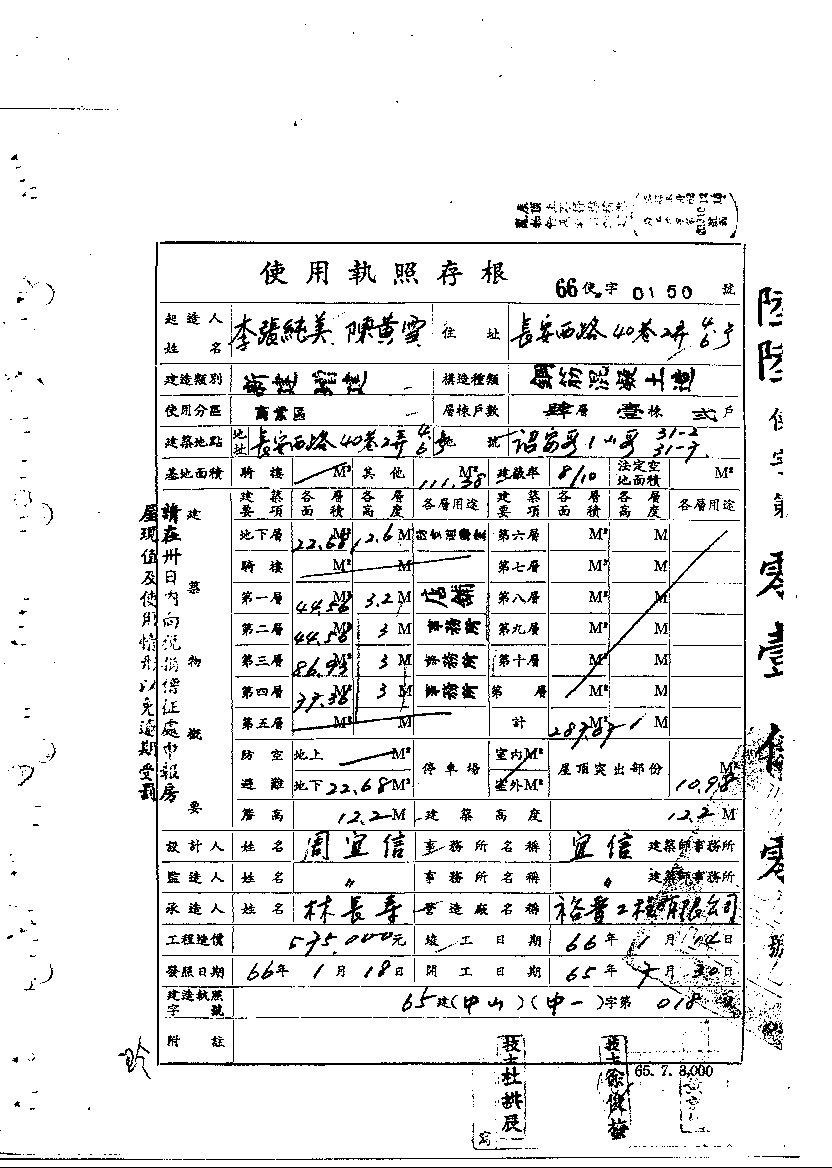 使用執照存根 66使字0150號
起造人姓名 李張純美 陳黃雪 住址 長安西路40巷2弄4.6号
建造類別 新建 構造種類 鋼筋混凝土造
使用分區 商業區 層棟戶數 肆層壹棟弍戶
建築地點 地址 長安西路40巷2弄4.6号 地號 31-2
基地面積 騎樓 M² 其他 111.38 M² 建蔽率 8/10 法定空地面積 M²
建築物概要
建築要項 各層面積 各層高度 各層用途 建築要項 各層面積 各層高度 各層用途
地下層 22.68 M² 2.6 M 第六層 M² M
騎樓 M² M 第七層 M² M
第一層 44.56 M² 3.2 M 店鋪 第八層 M² M
第二層 44.56 M² 3 M 第九層 M² M
第三層 86.93 M² 3 M 第十層 M² M
第四層 M² 3 M 第 層 M² M
第五層 M² M 計 M² M
防空避難 地上 M² 地下 22.68 M² 停車場 室內M² 室外M² 屋頂突出部份 10.98 M²
簷高 12.2 M 建築高度 12.2 M
設計人 姓名 周宜信 事務所名稱 宜信 建築師事務所
監造人 姓名 〃 事務所名稱 〃 建築師事務所
承造人 姓名 林長壽 營造廠名稱 裕晋工程有限公司
工程造價 575,000元 竣工日期 66年1月14日
發照日期 66年1月18日 開工日期 65年7月30日
建造執照字號 65建(中山)(中一)字第018號
附註
65. 7. 3,000
請在卅日內向稅捐稽征處申報房
屋現值及使用情形以免逾期受罰
陸陸使字第零壹伍零號